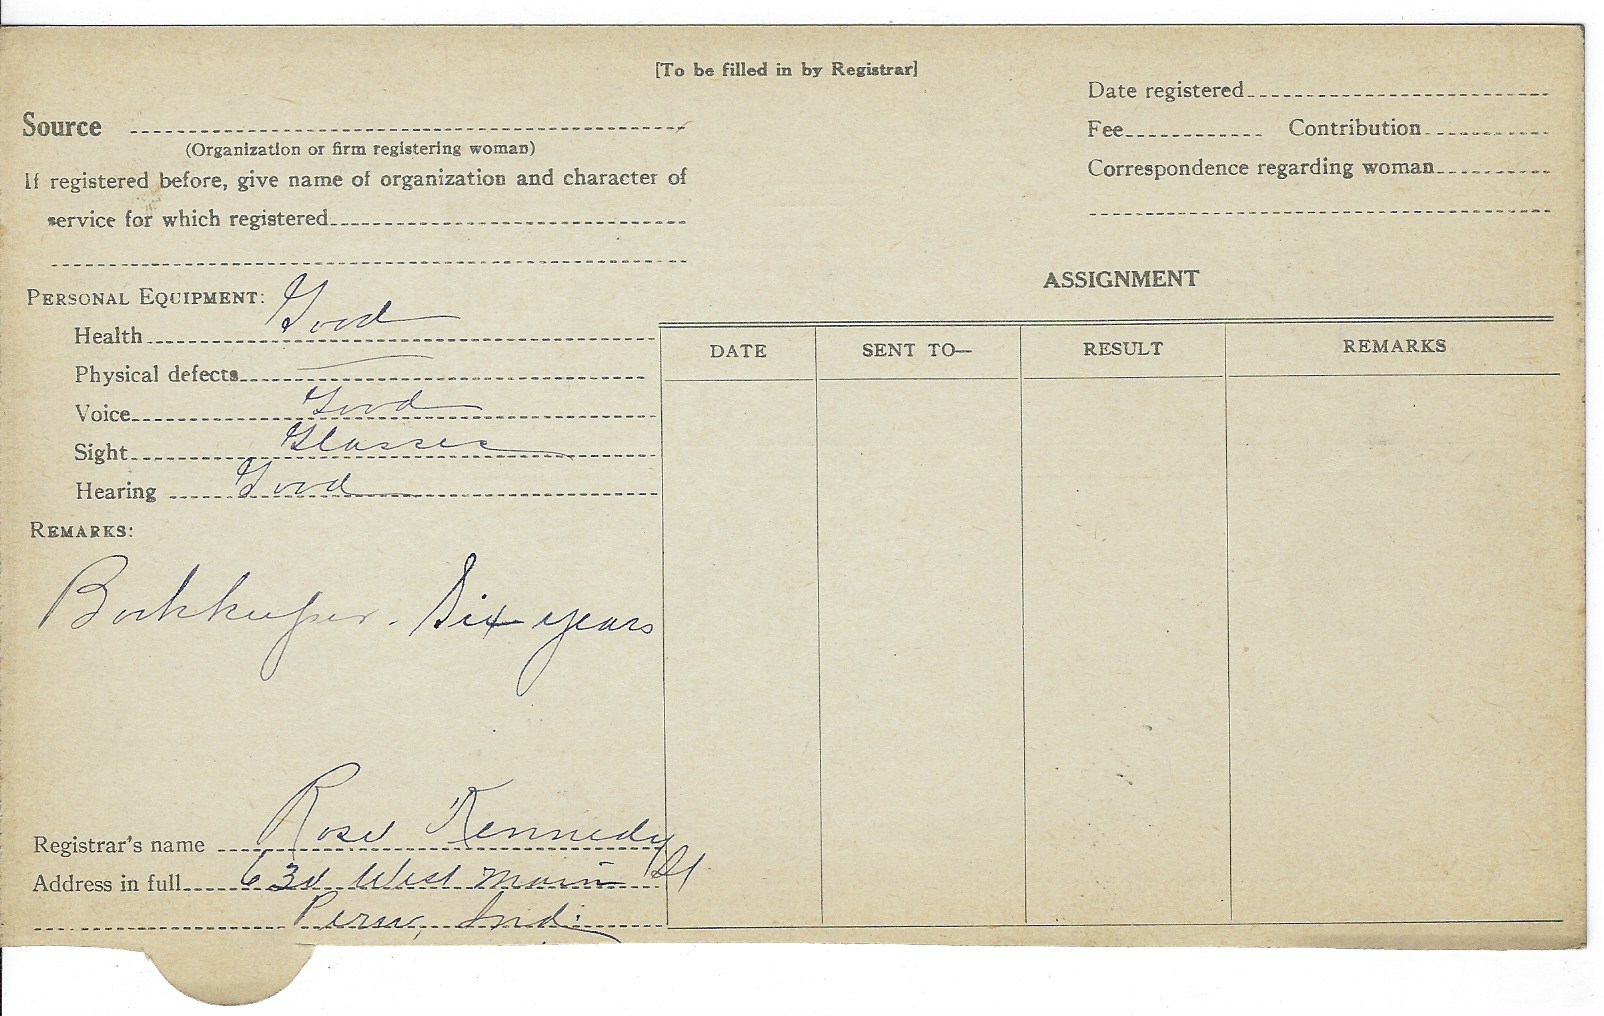 [To be filled in by Registrar]
Source
(Organization or firm registering woman)
If registered before, give name of organization and character of
service for which registered
Date registered
Fee Contribution
Correspondence regarding woman
PERSONAL EQUIPMENT:
Health Good
Physical defects —
Voice Good
Sight Glasses
Hearing Good
REMARKS:
Bookkeeper. Six years
Registrar's name Rose Kennedy
Address in full West Main St
Peru, Ind.
ASSIGNMENT
DATE SENT TO— RESULT REMARKS